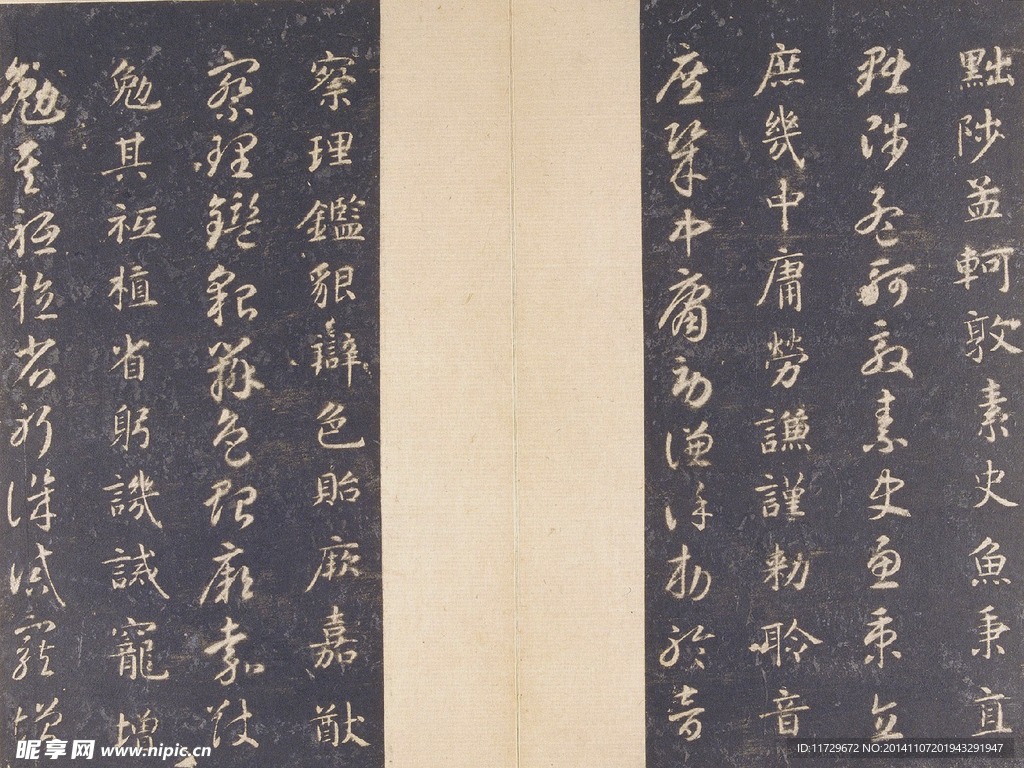 黜陟孟軻敦素史魚秉直
黜陟孟軻敦素史魚秉直
庶幾中庸勞謙謹勅聆音
庶幾中庸勞謙謹勅聆音
察理鑑貌辯色貽厥嘉猷
察理鑑貌辯色貽厥嘉猷
勉其祗植省躬譏誡寵增
勉其祗植省躬譏誡寵增
昵享网 www.nipic.cn
ID:11729672 NO:20141107201943291947